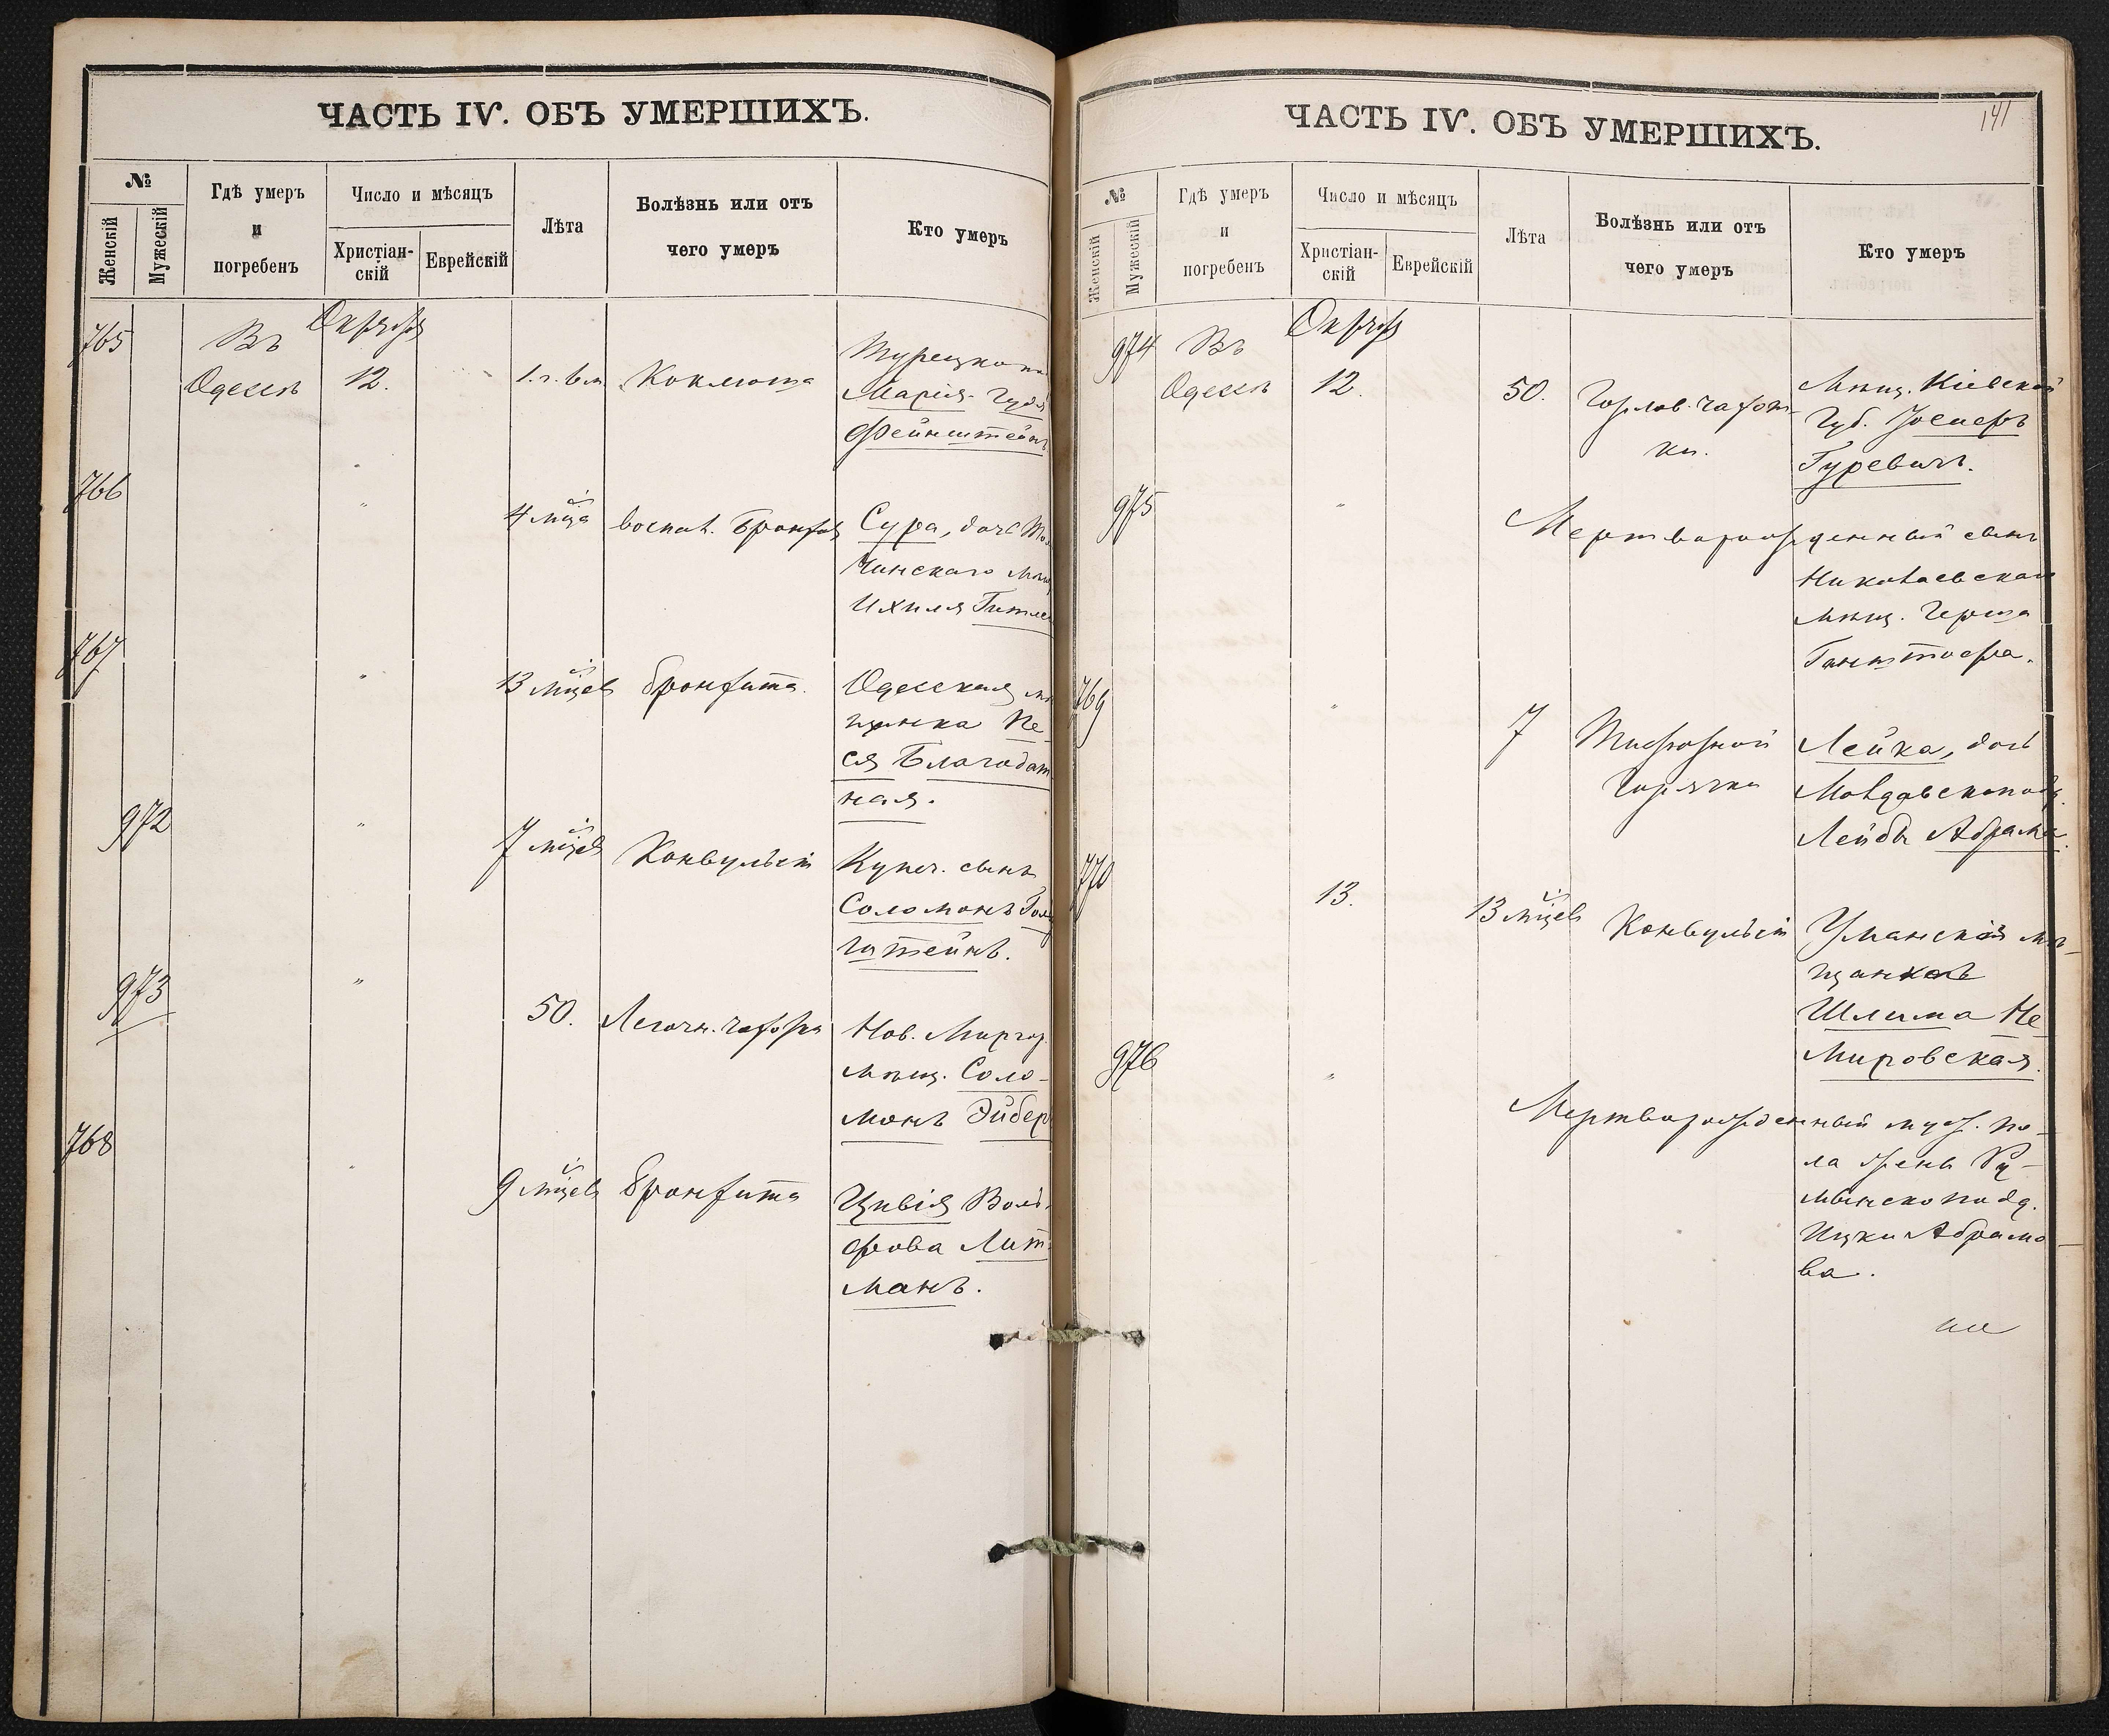 ЧАСТЬ IV. ОБЪ УМЕРШИХЪ.
№
Женскій
Мужескій
Гдѣ умеръ
и
погребенъ
Число и мѣсяцъ
Христіан-
скій
Еврейскій
Лѣта
Болѣзнь или отъ
чего умеръ
Кто умеръ
765
Въ
Одессѣ
12.
Коклюша
Марія
Фейнштейнъ
766
"
4 мца
воспал.
Сура, дочь
Чинскаго
Ихиля
767
"
13 мцевъ
Бронхита.
Одесская мѣ
щанка Пе
ся Благодат
ная.
972
"
7 мцевъ
Конвульсіи
Купеч. сынъ
Соломонъ
штейнъ.
973
"
50.
Легочн. чахотки
Нов. Миргор.
мѣщ. Соло-
монъ Эйбер
768
"
9 мцевъ
Бронхита
Цивія Воль-
фова Лит
манъ.
ЧАСТЬ IV. ОБЪ УМЕРШИХЪ.
141
№
Женскій
Мужескій
Гдѣ умеръ
и
погребенъ
Число и мѣсяцъ
Христіан-
скій
Еврейскій
Лѣта
Болѣзнь или отъ
чего умеръ
Кто умеръ
974
Въ
Одессѣ
12.
50.
Горлов. чахот-
ки.
Мѣщ. Кіевской
Губ. Іосифъ
Гуревичъ.
975
"
Мертворожденный сынъ
Николаевскаго
мѣщ. Герша
769
"
7
Тифозной
горячки
Лейка, дочь
Молдавскопод.
Лейбы Абрама
770
13.
13 мцевъ
Конвульсіи
Уманская мѣ-
щанка
Шлима Не
мировская.
976
"
Мертворожденный муж. по-
ла
мынскоподд.
Ицки Абрамо-
ва.